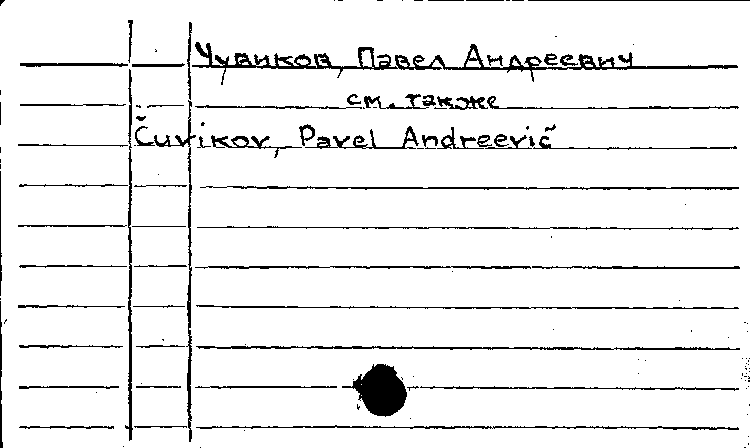 Чувиков, Павел Андреевич
см. также
Čuvikov, Pavel Andreevič